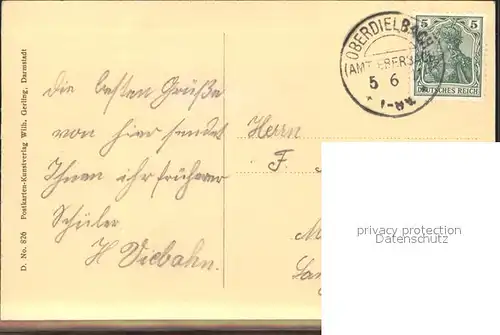 D. No. 826 Postkarten-Kunstverlag Wilh. Gerling, Darmstadt
die besten Grüße
von hier sendet
Ihnen ihr früherer
Schüler
H Viebahn.
OBERDIELBACH
(AMT EBERBACH)
5 6
5 5
DEUTSCHES REICH
Herrn
F.
M
privacy protection
Datenschutz